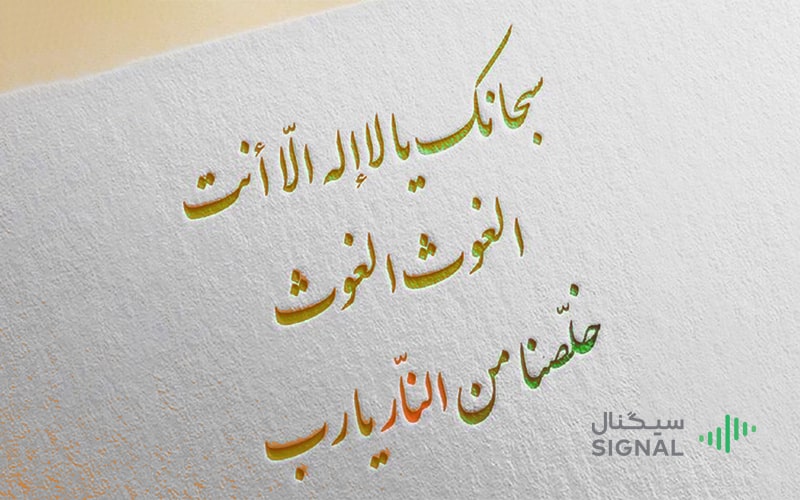 سبحانك يا لا إله الّا أنت
الغوث الغوث
خلّصنا من النّار يا رب
سیگنال
SIGNAL